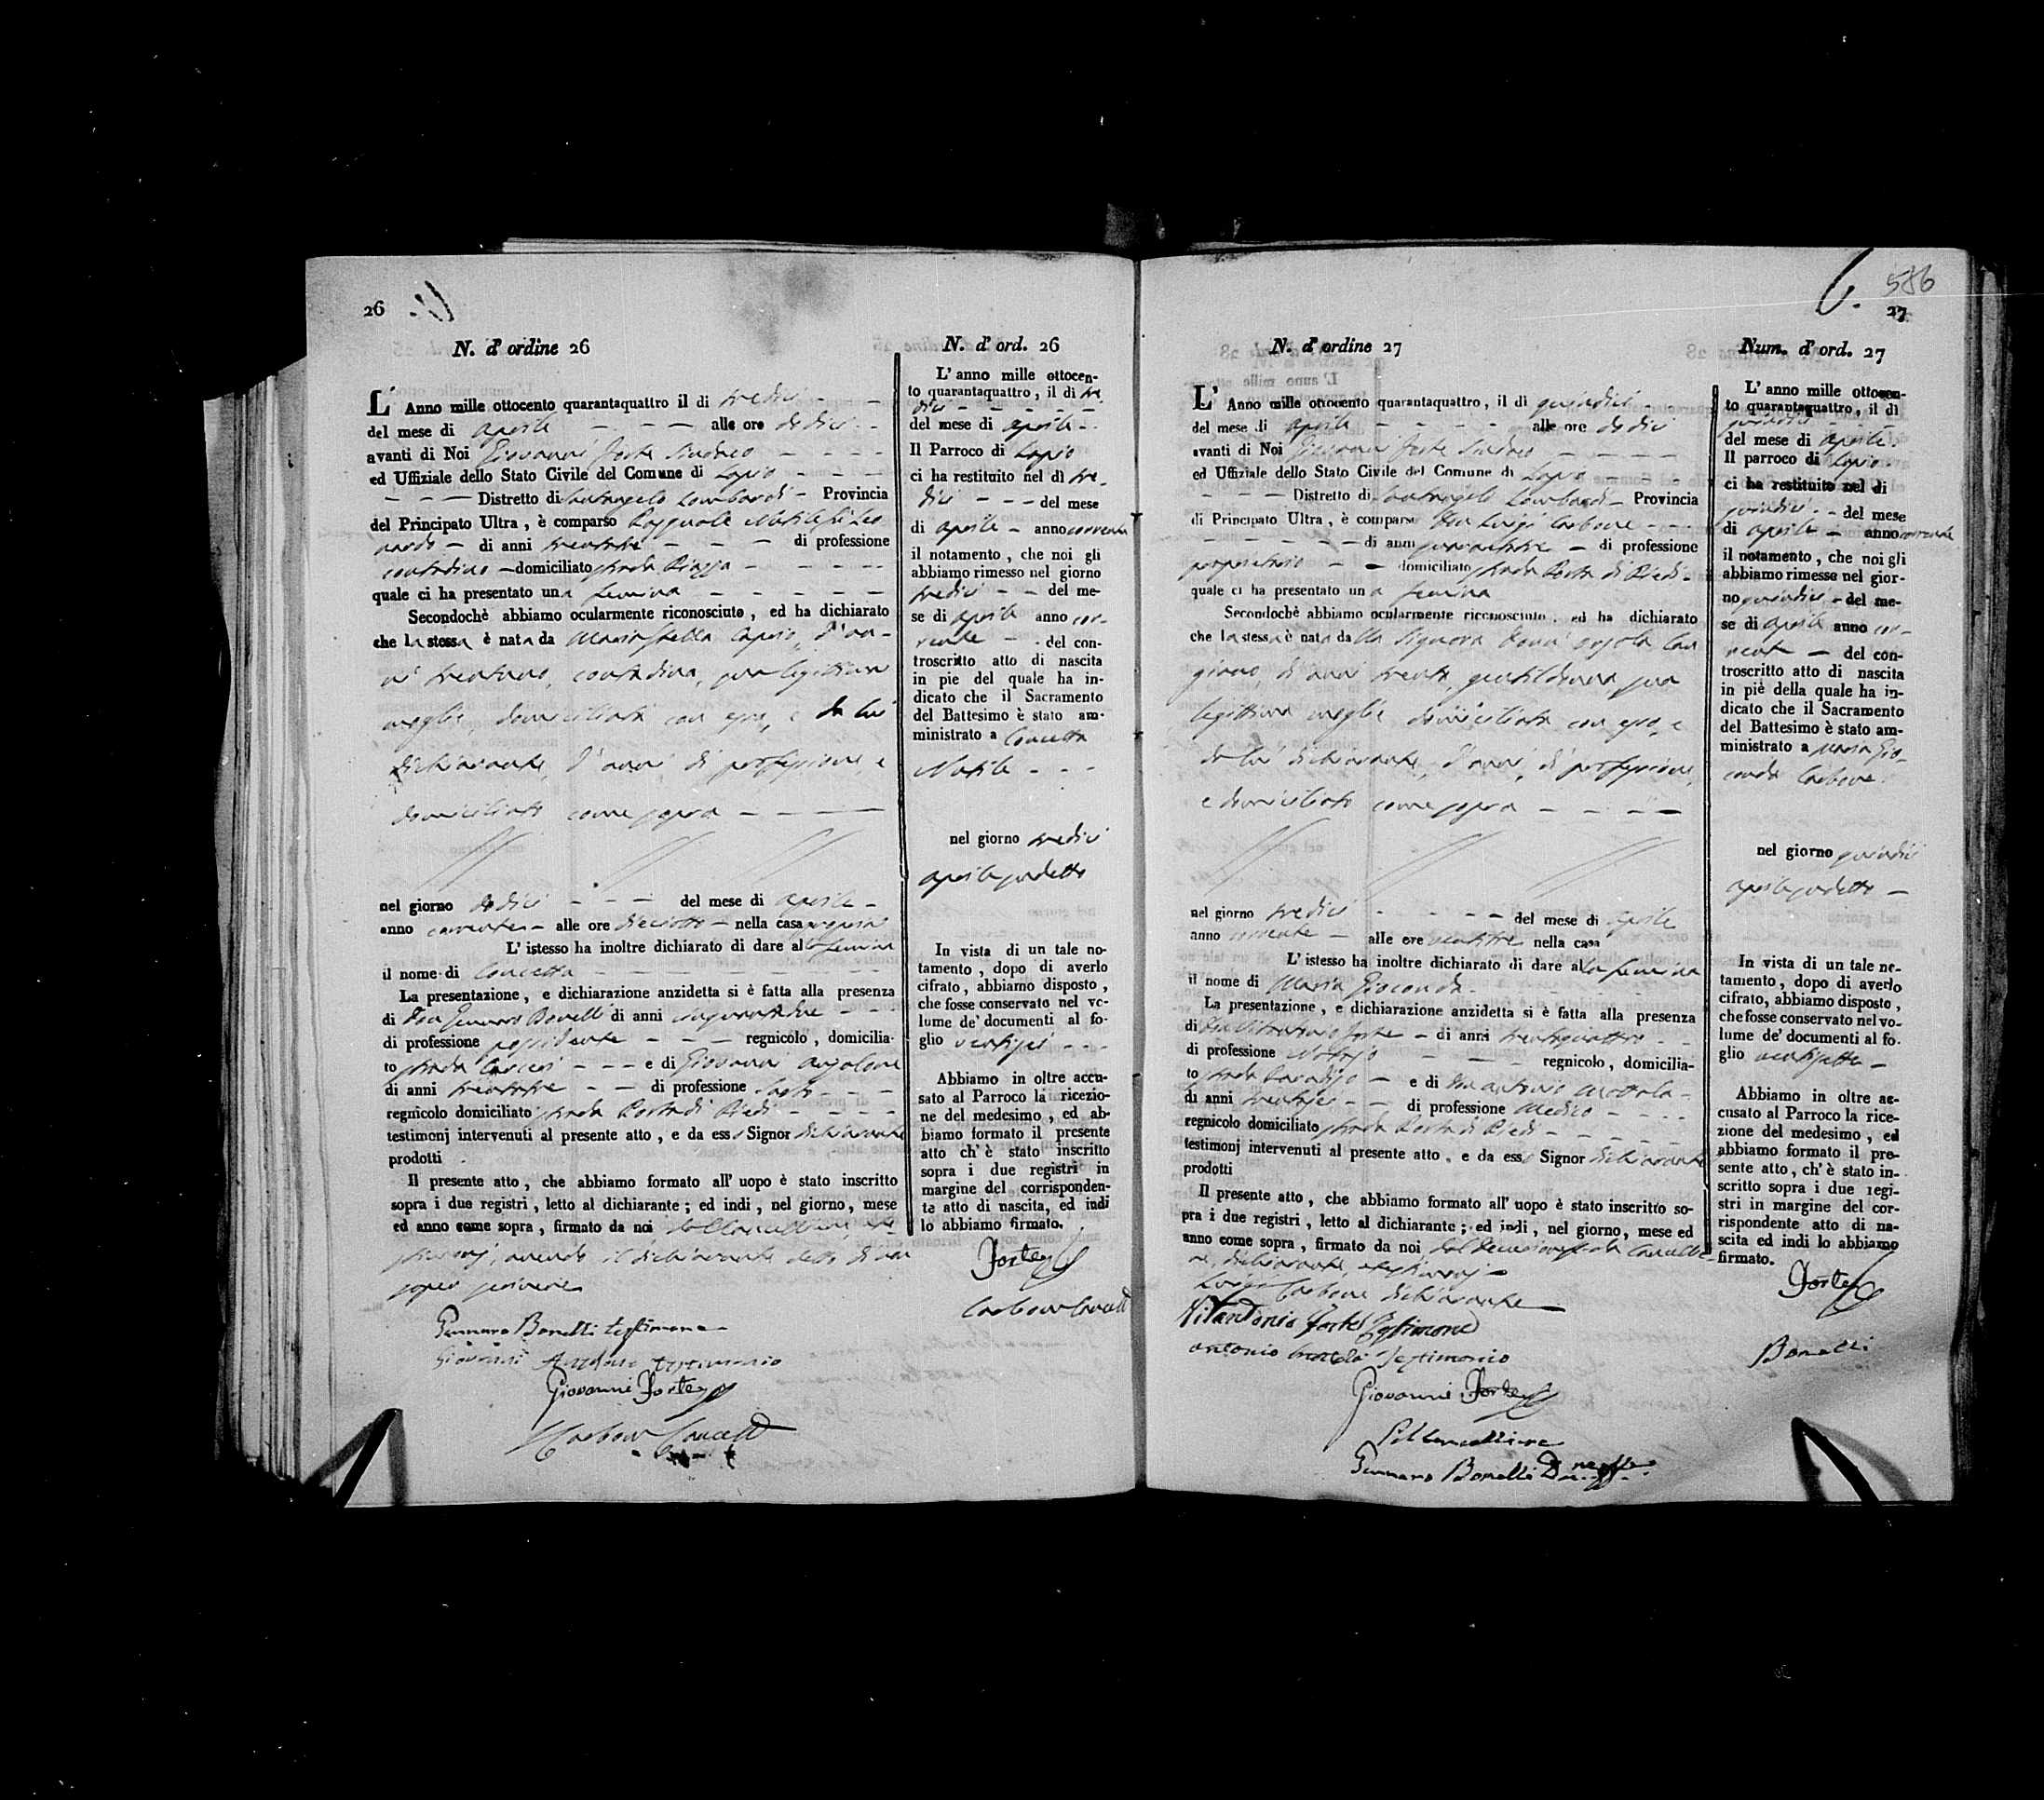 26
N. d' ordine 26
L' Anno mille ottocento quarantaquattro il di tredici
del mese di aprile alle ore dodici
avanti di Noi Giovanni Forte Sindaco
ed Uffiziale dello Stato Civile del Comune di Lapio
Distretto di Santangelo Lombardi Provincia
del Principato Ultra, è comparso Pasquale Matile di Leo
nardo di anni trentatre di professione
contadino domiciliato strada Piazza
quale ci ha presentato una femina
Secondochè abbiamo ocularmente riconosciuto, ed ha dichiarato
che la stessa è nata da Mariastella Caprio, d'an-
ni trentuno, contadina, sua legittima
moglie, domiciliata con esso, e da lui
dichiarante, d'anni, di professione, e
domiciliato come sopra
nel giorno dodici del mese di aprile
anno corrente alle ore dieciotto nella casa propria
L' istesso ha inoltre dichiarato di dare alla femina
il nome di Concetta
La presentazione, e dichiarazione anzidetta si è fatta alla presenza
di Don Gennaro Bonelli di anni cinquantadue
di professione possidente regnicolo, domicilia-
to strada e di Giovanni Anzalone
di anni trentatre di professione Sarto
regnicolo domiciliato strada Porta di Piedi
testimonj intervenuti al presente atto, e da esso Signor dichiarante
prodotti
Il presente atto, che abbiamo formato all' uopo è stato inscritto
sopra i due registri, letto al dichiarante; ed indi, nel giorno, mese
ed anno come sopra, firmato da noi dal Cancelliere, e te
stimonj, avendo il dichiarante detto di non
sapere scrivere
Gennaro Bonelli testimone
Giovanni Anzalone testimonio
Giovanni Forte
Carbone Cancell
N. d' ord. 26
L' anno mille ottocen-
to quarantaquattro, il di tre
dici
del mese di aprile
Il Parroco di Lapio
ci ha restituito nel dì tre
dici del mese
di aprile anno corrente
il notamento, che noi gli
abbiamo rimesso nel giorno
tredici del me-
se di aprile anno cor-
rente del con-
troscritto atto di nascita
in pie del quale ha in-
dicato che il Sacramento
del Battesimo è stato am-
ministrato a Concetta
Matile
nel giorno tredici
aprile sudetto
In vista di un tale no-
tamento, dopo di averlo
cifrato, abbiamo disposto,
che fosse conservato nel vo-
lume de' documenti al fo-
glio ventisei
Abbiamo in oltre accu-
sato al Parroco la ricezio-
ne del medesimo, ed ab-
biamo formato il presente
atto ch' è stato inscritto
sopra i due registri in
margine del corrisponden-
te atto di nascita, ed indi
lo abbiamo firmato.
Forte
Carbone Cancell
586
27
N. d' ordine 27
L' Anno mille ottocento quarantaquattro, il di quindici
del mese di aprile alle ore dodici
avanti di Noi Giovanni Forte Sindaco
ed Uffiziale dello Stato Civile del Comune di Lapio
Distretto di Santangelo Lombardi Provincia
di Principato Ultra, è comparso Don Luigi Carbone
di anni quarantatre di professione
proprietario domiciliato strada Porta di Piedi
quale ci ha presentato una femina
Secondochè abbiamo ocularmente riconosciuto, ed ha dichiarato
che la stessa è nata dalla Signora Donna Orsola Can
giano, di anni trenta, gentildonna, sua
legittima moglie domiciliata con esso, e
da lui dichiarante, d'anni, di professione,
e domiciliato come sopra
nel giorno tredici del mese di aprile
anno corrente alle ore ventitre nella casa
L' istesso ha inoltre dichiarato di dare alla femina
il nome di Maria Gioconda
La presentazione, e dichiarazione anzidetta si è fatta alla presenza
di Don Vitantonio Forte di anni trentaquattro
di professione Notajo regnicolo, domicilia-
to strada Paradiso e di Don Antonio Mottola
di anni trentasei di professione Medico
regnicolo domiciliato strada Porta di Piedi
testimonj intervenuti al presente atto, e da esso Signor dichiarante
prodotti
Il presente atto, che abbiamo formato all' uopo è stato inscritto so-
pra i due registri, letto al dichiarante; ed indi, nel giorno, mese ed
anno come sopra, firmato da noi dal da Cancellie
re, dichiarante, e testimonj
Luigi Carbone dichiarante
Vitantonio Forte Testimone
Antonio Mottola Testimonio
Giovanni Forte
Pel Cancelliere
Gennaro Bonelli
Num. d' ord. 27
L' anno mille ottocen-
to quarantaquattro, il di
quindici
del mese di aprile
Il parroco di Lapio
ci ha restituito nel di
quindici del mese
di aprile anno corrente
il notamento, che noi gli
abbiamo rimesso nel gior-
no quindici del me-
se di aprile anno cor-
rente del con-
troscritto atto di nascita
in piè della quale ha in-
dicato che il Sacramento
del Battesimo è stato am-
ministrato a Maria Gio-
conda Carbone
nel giorno quindici
aprile sudetto
In vista di un tale no-
tamento, dopo di averlo
cifrato, abbiamo disposto,
che fosse conservato nel vo-
lume de' documenti al fo-
glio ventisette
Abbiamo in oltre ac-
cusato al Parroco la rice-
zione del medesimo, ed
abbiamo formato il pre-
sente atto, ch' è stato in-
scritto sopra i due regi-
stri in margine del cor-
rispondente atto di na-
scita ed indi lo abbiamo
firmato.
Forte
Bonelli